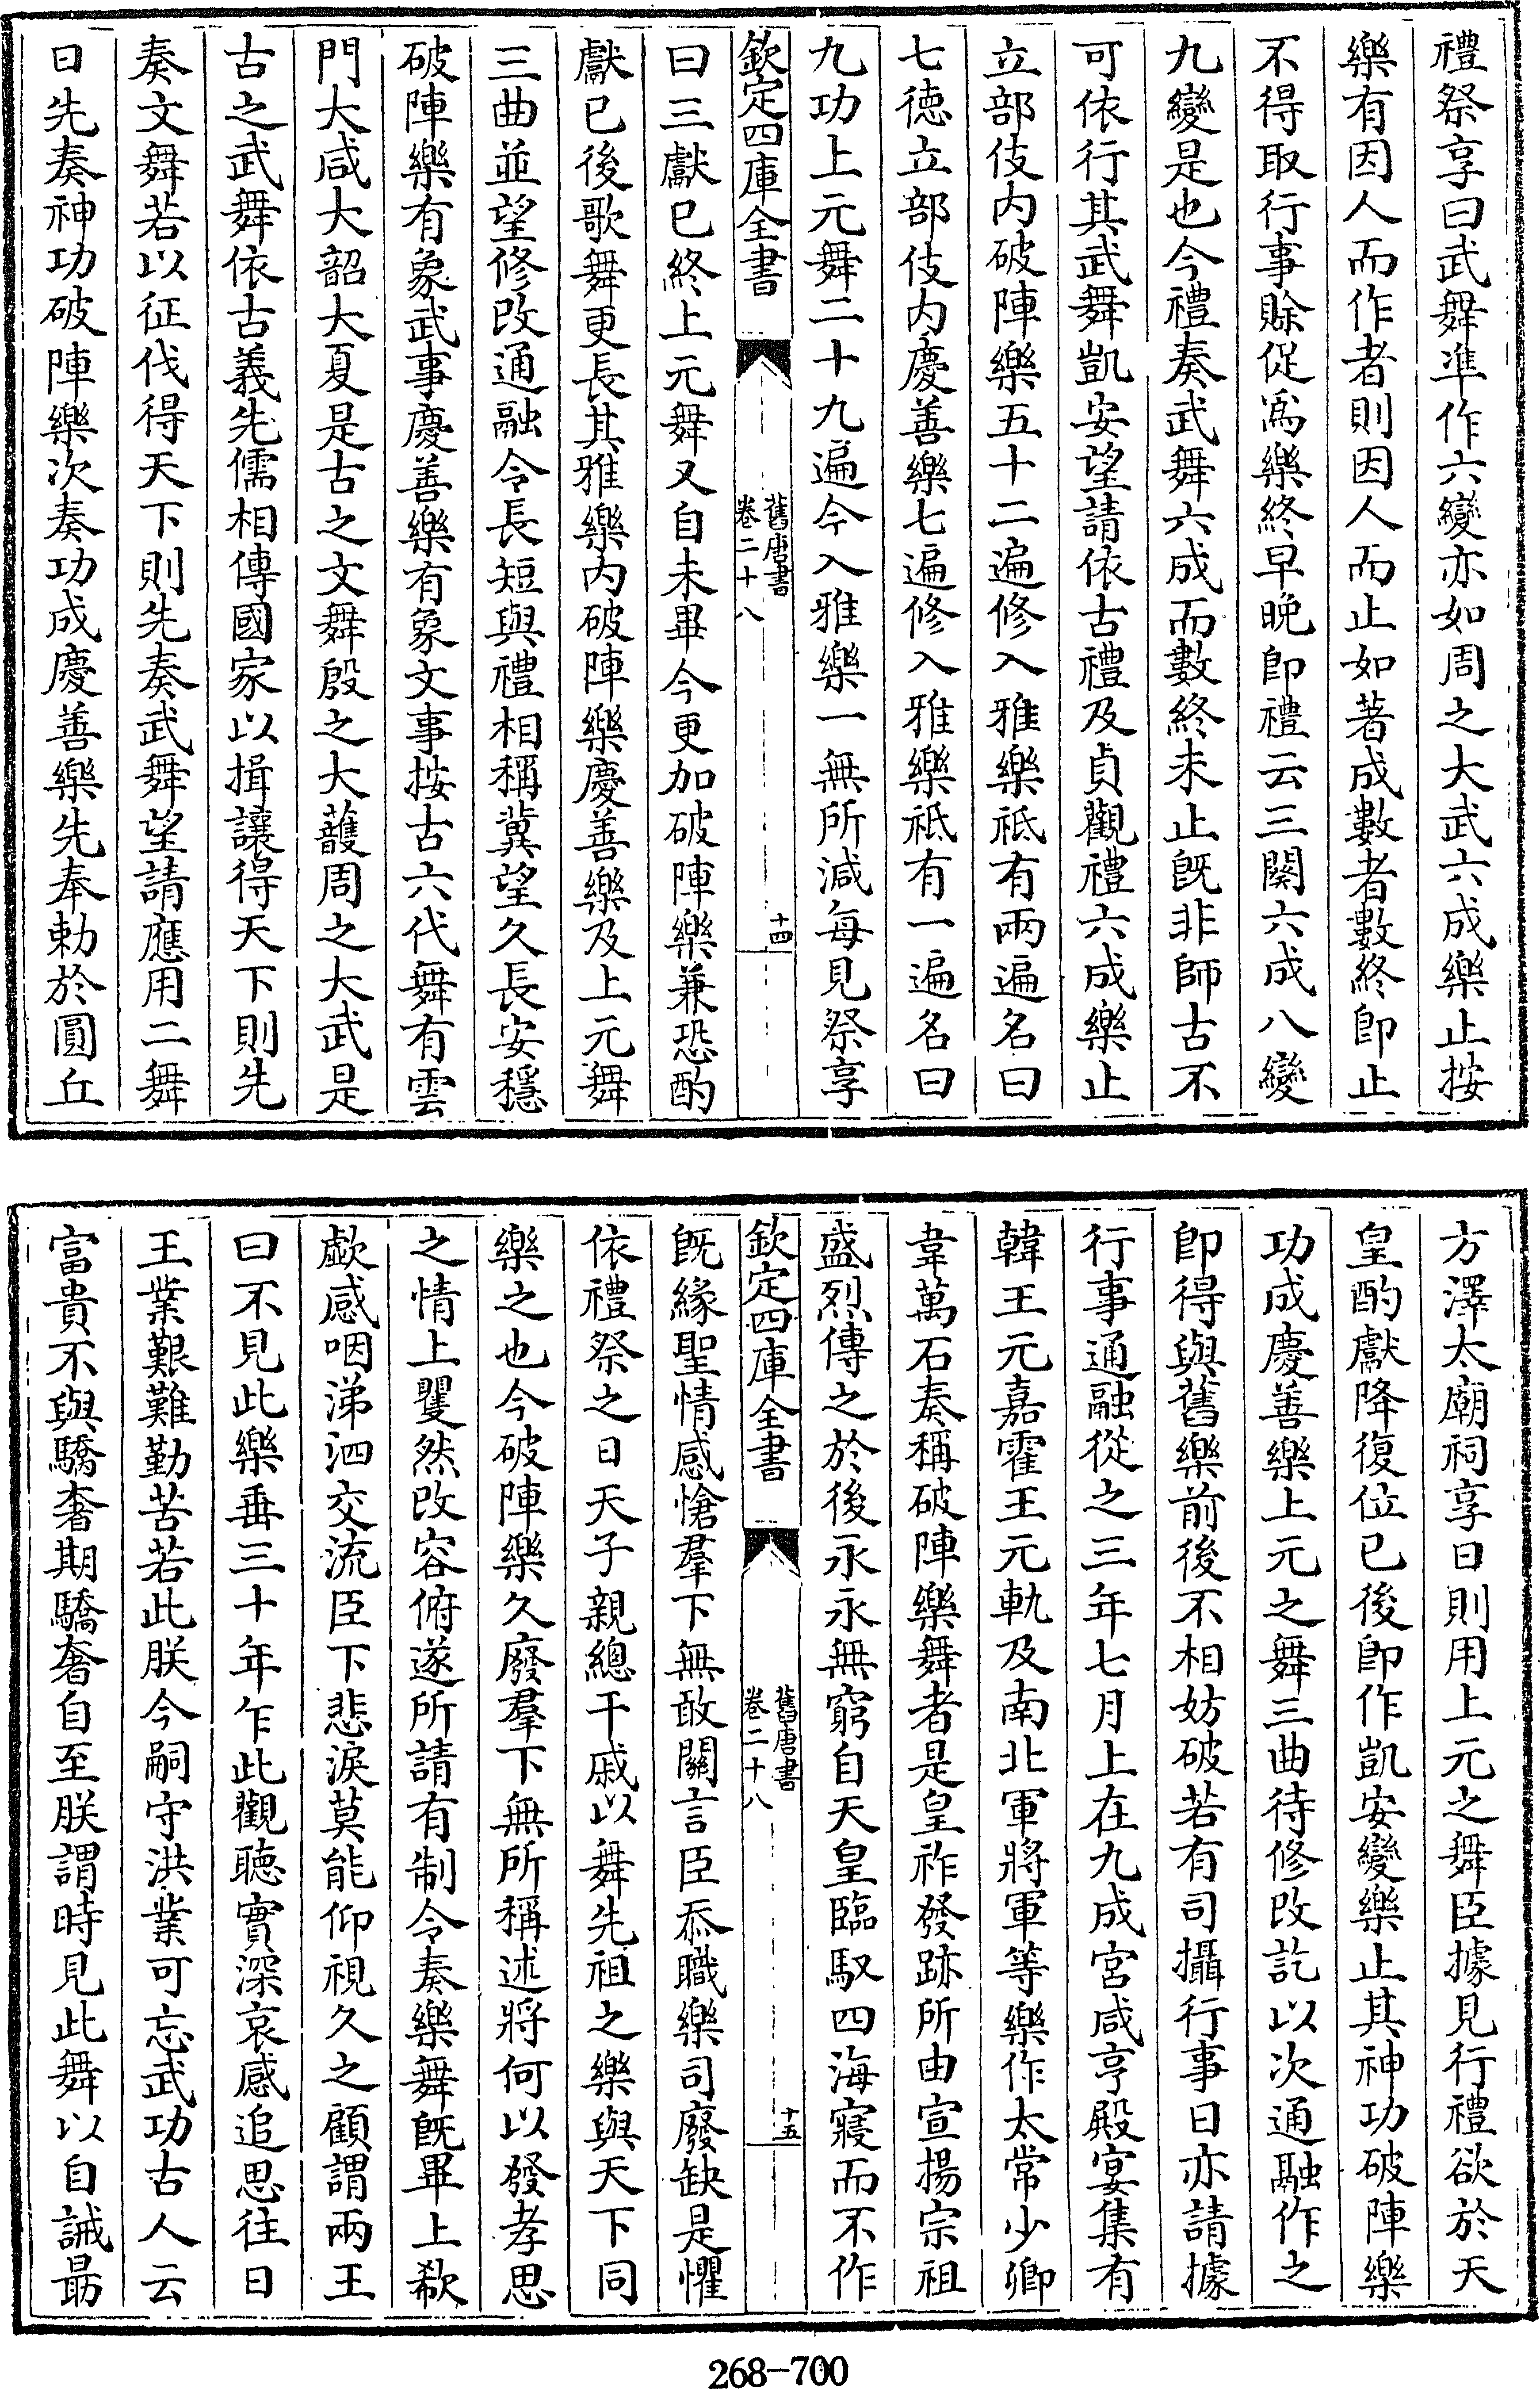 禮祭享曰武舞凖作六變亦如周之大武六成樂止按
樂有因人而作者則因人而止如著成數者數終即止
不得取行事賖促為樂終早晚即禮云三闋六成八變
九變是也今禮奏武舞六成而數終未止既非師古不
可依行其武舞凱安望請依古禮及貞觀禮六成樂止
立部伎内破陣樂五十二遍修入雅樂祗有兩遍名曰
七徳立部伎内慶善樂七遍修入雅樂祗有一遍名曰
九功上元舞二十九遍今入雅樂一無所減每見祭享
欽定四庫全書
舊唐書
卷二十八
十四
曰三獻已終上元舞又自未畢今更加破陣樂兼恐酌
獻已後歌舞更長其雅樂内破陣樂慶善樂及上元舞
三曲並望修改通融令長短與禮相稱冀望久長安穩
破陣樂有象武事慶善樂有象文事按古六代舞有雲
門大咸大韶大夏是古之文舞殷之大頀周之大武是
古之武舞依古義先儒相傳國家以揖讓得天下則先
奏文舞若以征伐得天下則先奏武舞望請應用二舞
日先奏神功破陣樂次奏功成慶善樂先奉勅於圓丘
方澤太廟祠享日則用上元之舞臣據見行禮欲於天
皇酌獻降復位已後即作凱安變樂止其神功破陣樂
功成慶善樂上元之舞三曲待修改訖以次通融作之
即得與舊樂前後不相妨破若有司攝行事日亦請據
行事通融從之三年七月上在九成宮咸亨殿宴集有
韓王元嘉霍王元軌及南北軍將軍等樂作太常少卿
韋萬石奏稱破陣樂舞者是皇祚發跡所由宣揚宗祖
盛烈傳之於後永永無窮自天皇臨馭四海寢而不作
欽定四庫全書
舊唐書
卷二十八
十五
既緣聖情感愴羣下無敢關言臣忝職樂司廢缺是懼
依禮祭之日天子親總干戚以舞先祖之樂與天下同
樂之也今破陣樂久廢羣下無所稱述將何以發孝思
之情上矍然改容俯遂所請有制令奏樂舞既畢上欷
歔感咽涕泗交流臣下悲淚莫能仰視久之顧謂兩王
曰不見此樂垂三十年乍此觀聴實深哀感追思往日
王業艱難勤苦若此朕今嗣守洪業可忘武功古人云
富貴不與驕奢期驕奢自至朕謂時見此舞以自誡朂
268-700